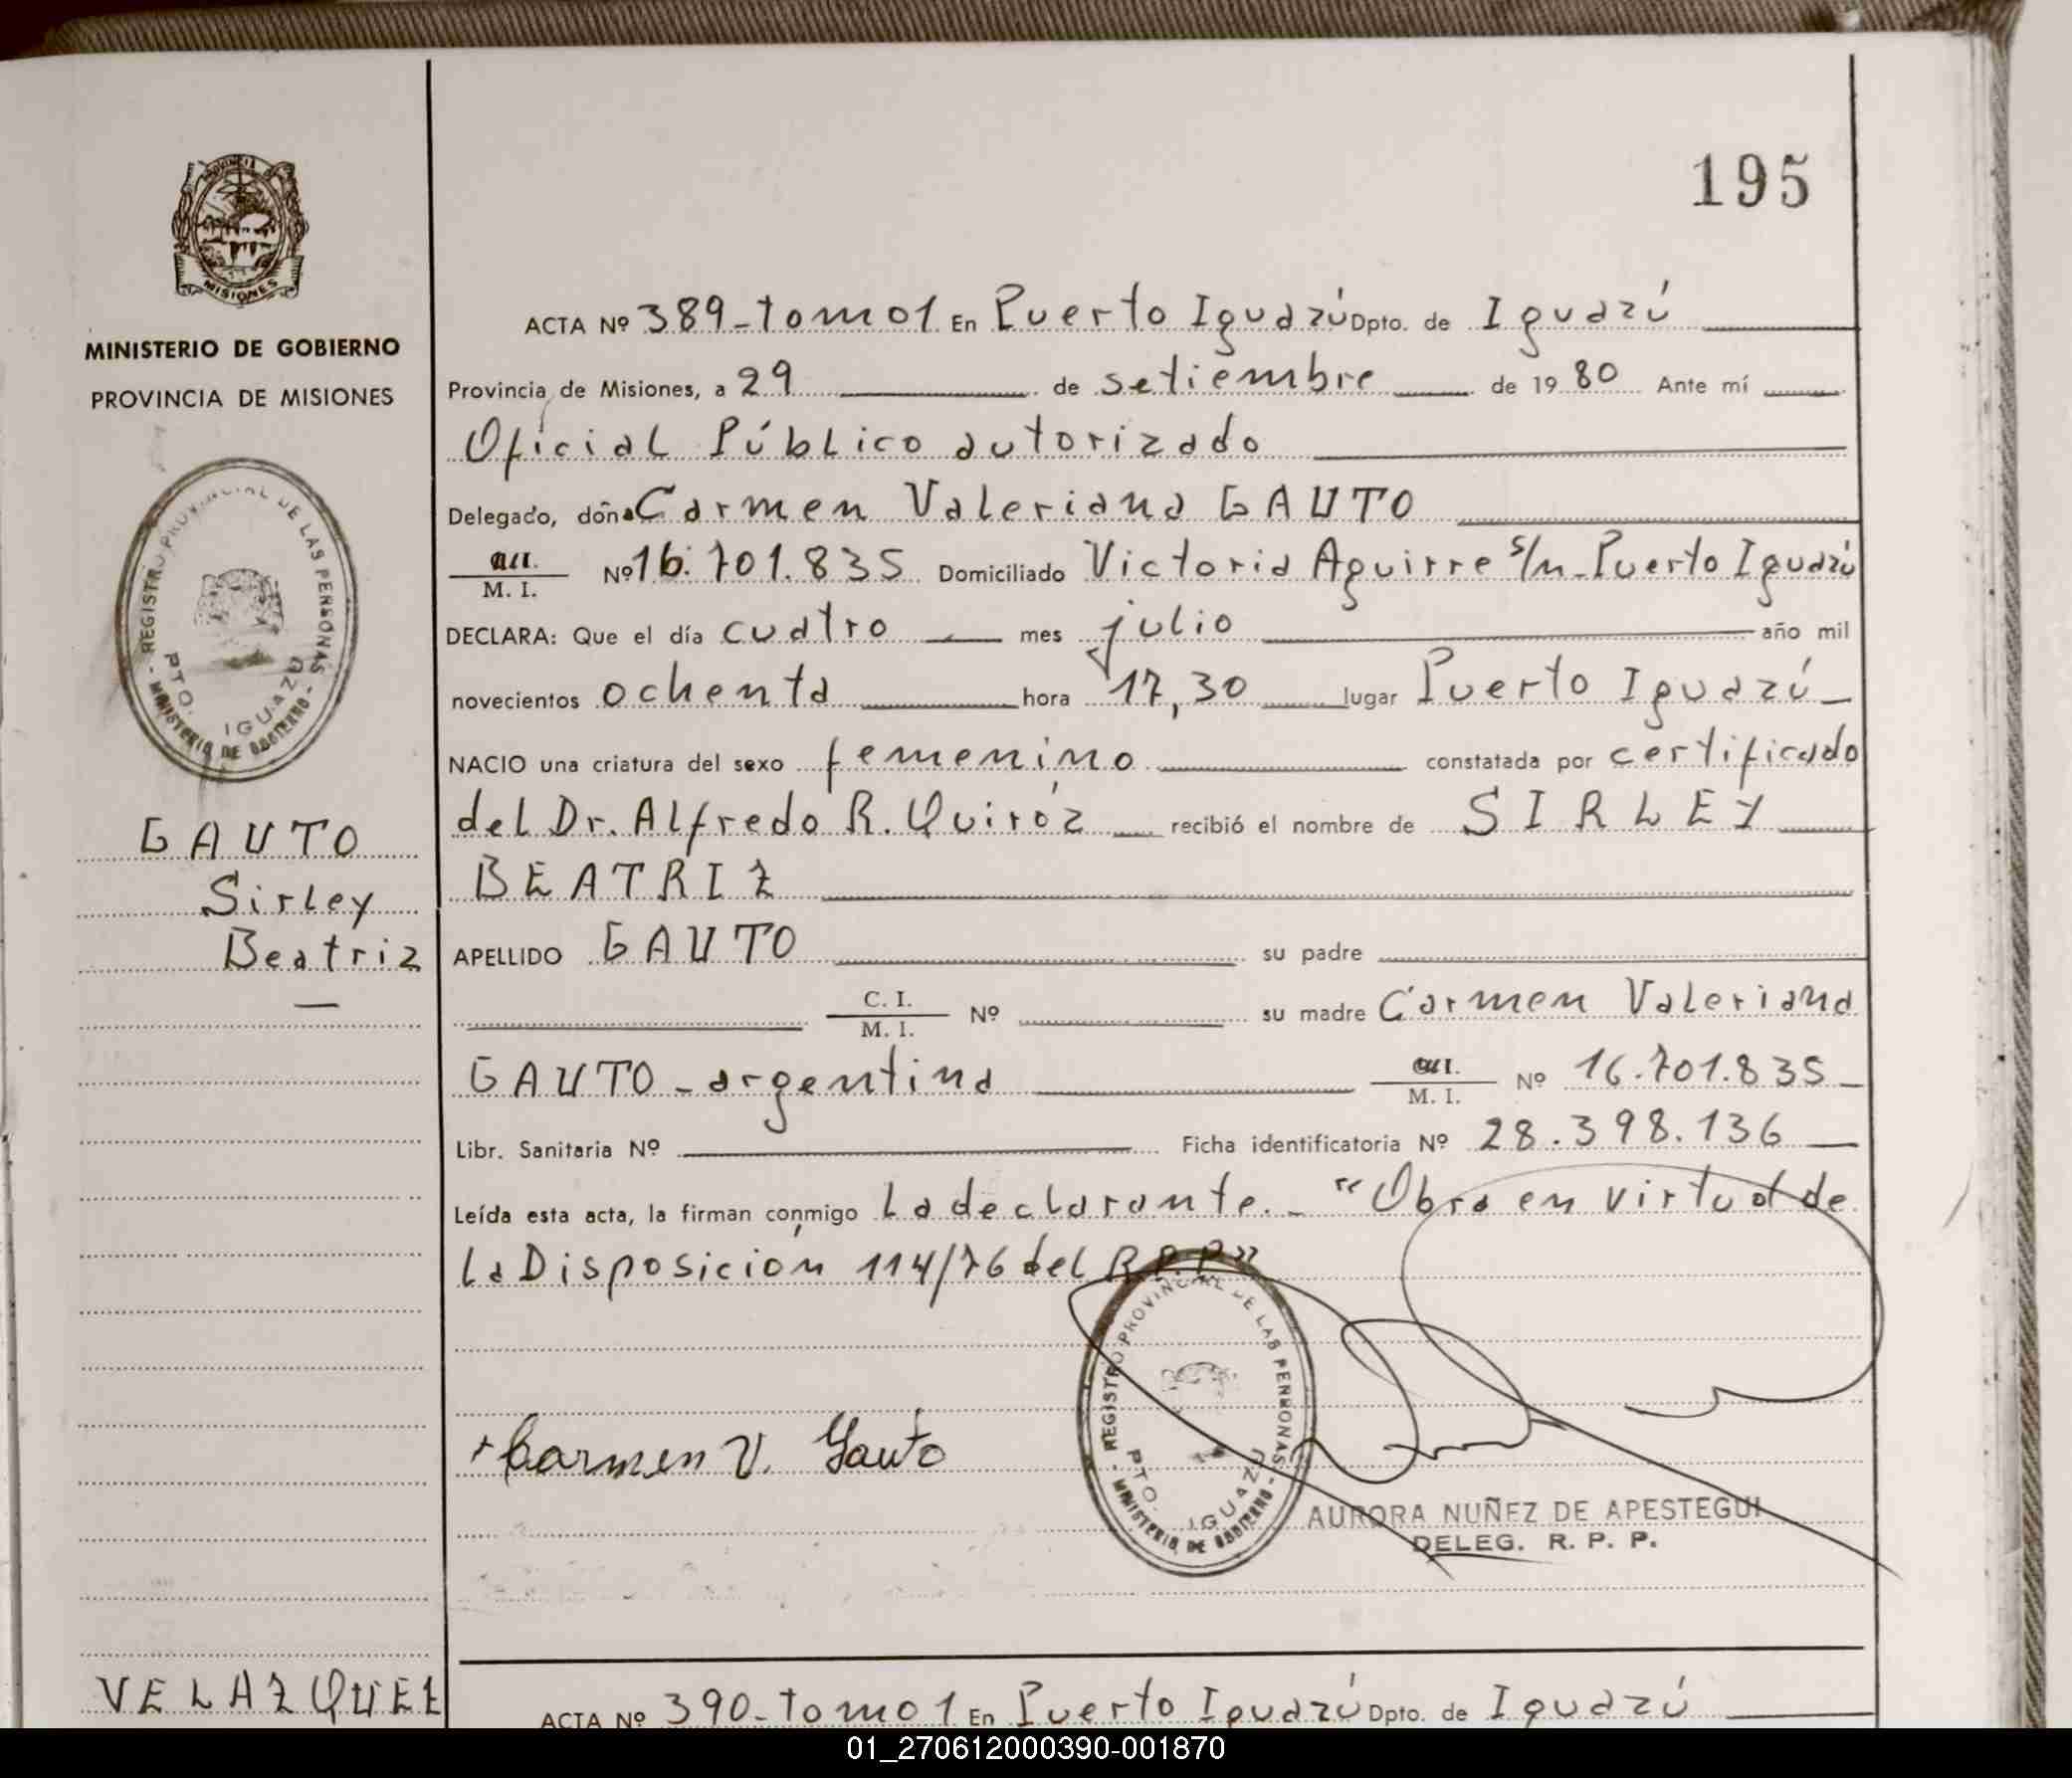 195
PROVINCIA
MISIONES
MINISTERIO DE GOBIERNO
PROVINCIA DE MISIONES
REGISTRO PROVINCIAL DE LAS PERSONAS
PTO. IGUAZU
MINISTERIO DE GOBIERNO
GAUTO
Sirley
Beatriz
ACTA Nº 389-tomo 1 En Puerto Iguazú Dpto. de Iguazú
Provincia de Misiones, a 29 de setiembre de 1980 Ante mí
Oficial Público autorizado
Delegado, doña Carmen Valeriana GAUTO
M. I. Nº 16.701.835 Domiciliado Victoria Aguirre s/n-Puerto Iguazú
DECLARA: Que el día cuatro mes julio año mil
novecientos ochenta hora 17,30 lugar Puerto Iguazú
NACIO una criatura del sexo femenino constatada por certificado
del Dr. Alfredo R. Quiróz recibió el nombre de SIRLEY
BEATRIZ
APELLIDO GAUTO su padre
C. I. M. I. Nº su madre Carmen Valeriana
GAUTO-argentina M. I. Nº 16.701.835
Libr. Sanitaria Nº Ficha identificatoria Nº 28.398.136
Leída esta acta, la firman conmigo La declarante.- "Obra en virtud de
La Disposición 114/76 del R.P.P"
Carmen V. Gauto
REGISTRO PROVINCIAL DE LAS PERSONAS
PTO. IGUAZU
MINISTERIO DE GOBIERNO
AURORA NUÑEZ DE APESTEGUI
DELEG. R. P. P.
VELAZQUEZ
ACTA Nº 390-tomo 1 En Puerto Iguazú Dpto. de Iguazú
01_270612000390-001870